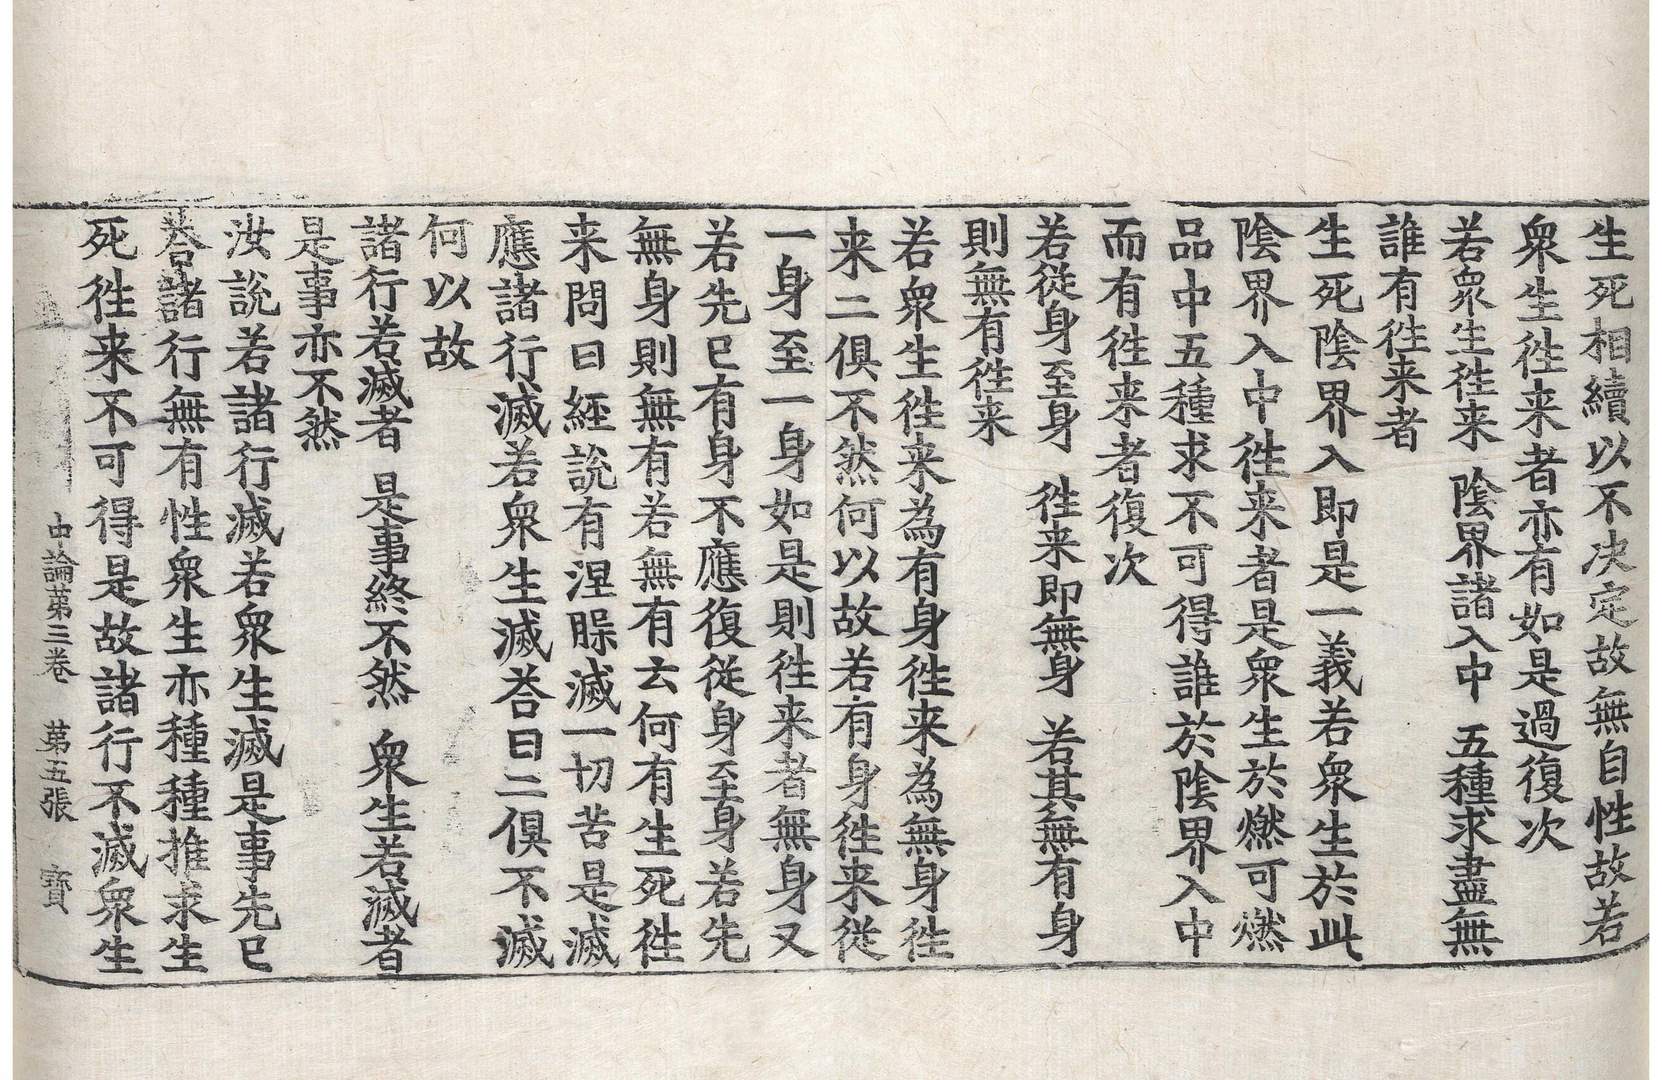 生死相續以不決定故無自性故若
衆生徃来者亦有如是過復次
若衆生徃来 陰界諸入中 五種求盡無
誰有徃来者
生死陰界入即是一義若衆生於此
陰界入中徃来者是衆生於燃可燃
品中五種求不可得誰於陰界入中
而有徃来者復次
若從身至身 徃来即無身 若其無有身
則無有徃来
若衆生徃来為有身徃来為無身徃
来二俱不然何以故若有身徃来從
一身至一身如是則徃来者無身又
若先已有身不應復從身至身若先
無身則無有若無有云何有生死徃
来問曰經說有涅槃滅一切苦是滅
應諸行滅若衆生滅荅曰二俱不滅
何以故
諸行若滅者 是事終不然 衆生若滅者
是事亦不然
汝說若諸行滅若衆生滅是事先已
荅諸行無有性衆生亦種種推求生
死徃来不可得是故諸行不滅衆生
中論第三卷 第五張 寶